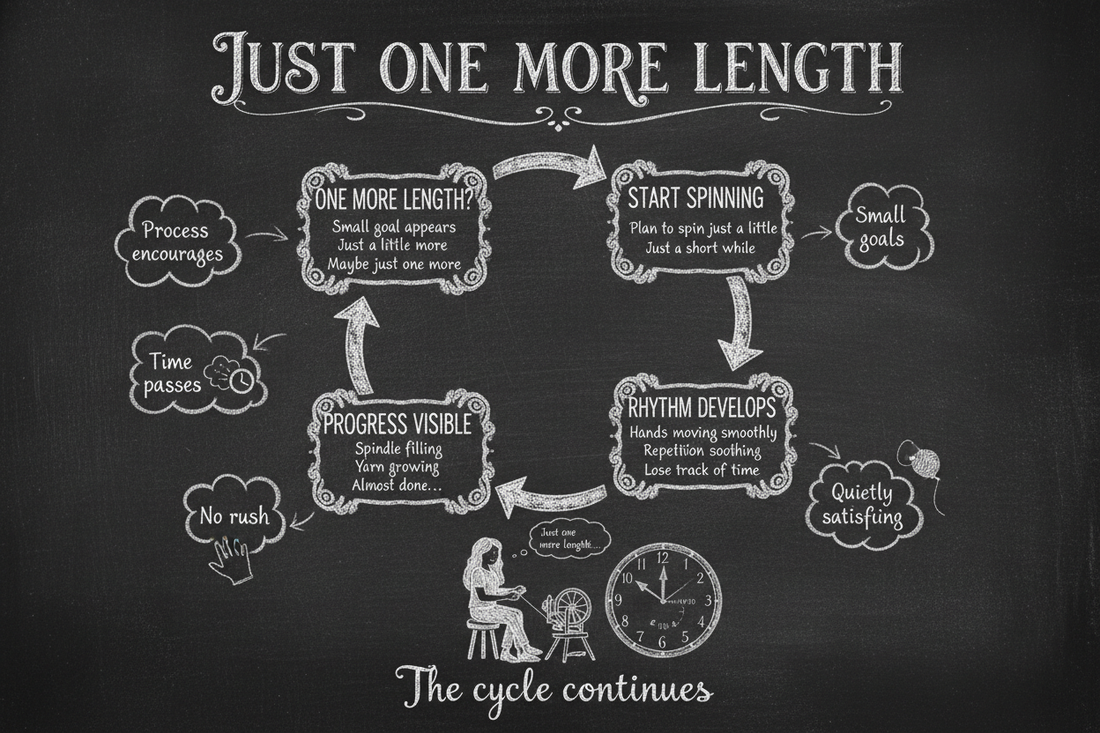 JUST ONE MORE LENGTH
ONE MORE LENGTH?
Small goal appears
Just a little more
Maybe just one more
START SPINNING
Plan to spin just a little
Just a short while
Process
encourages
Small
goals
Time
passes
PROGRESS VISIBLE
Spindle filling
Yarn growing
Almost done...
RHYTHM DEVELOPS
Hands moving smoothly
Repetition soothing
Lose track of time
No rush
Quietly
satisfiing
Just one
more
12
11
1
10
2
9
3
8
4
7
5
6
The cycle continues